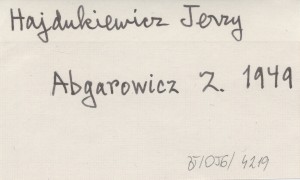 Hajdukiewicz Jerzy
Abgarowicz Z. 1949